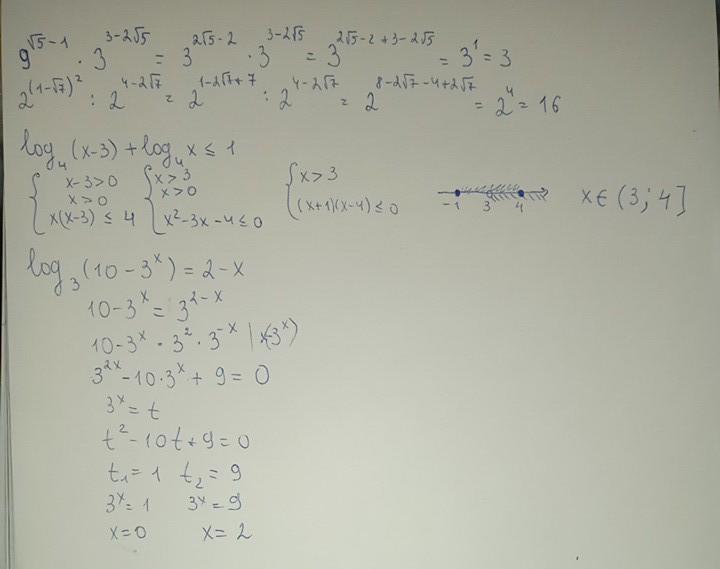 9^(√5-1) · 3^(3-2√5) = 3^(2√5-2) · 3^(3-2√5) = 3^(2√5-2+3-2√5) = 3^1 = 3
2^((1-√7)^2) : 2^(4-2√7) = 2^(1-2√7+7) : 2^(4-2√7) = 2^(8-2√7-4+2√7) = 2^4 = 16
log₄(x-3) + log₄x ≤ 1
{ x-3>0 { x>3 { x>3
x>0 x>0
x(x-3) ≤ 4 x²-3x-4≤0 (x+1)(x-4) ≤ 0 -1 3 4 x ∈ (3; 4]
log₃(10-3^x) = 2-x
10-3^x = 3^(2-x)
10-3^x = 3² · 3^(-x) | ×(-3^x)
3^(2x) - 10·3^x + 9 = 0
3^x = t
t² - 10t + 9 = 0
t₁ = 1 t₂ = 9
3^x = 1 3^x = 9
x = 0 x = 2